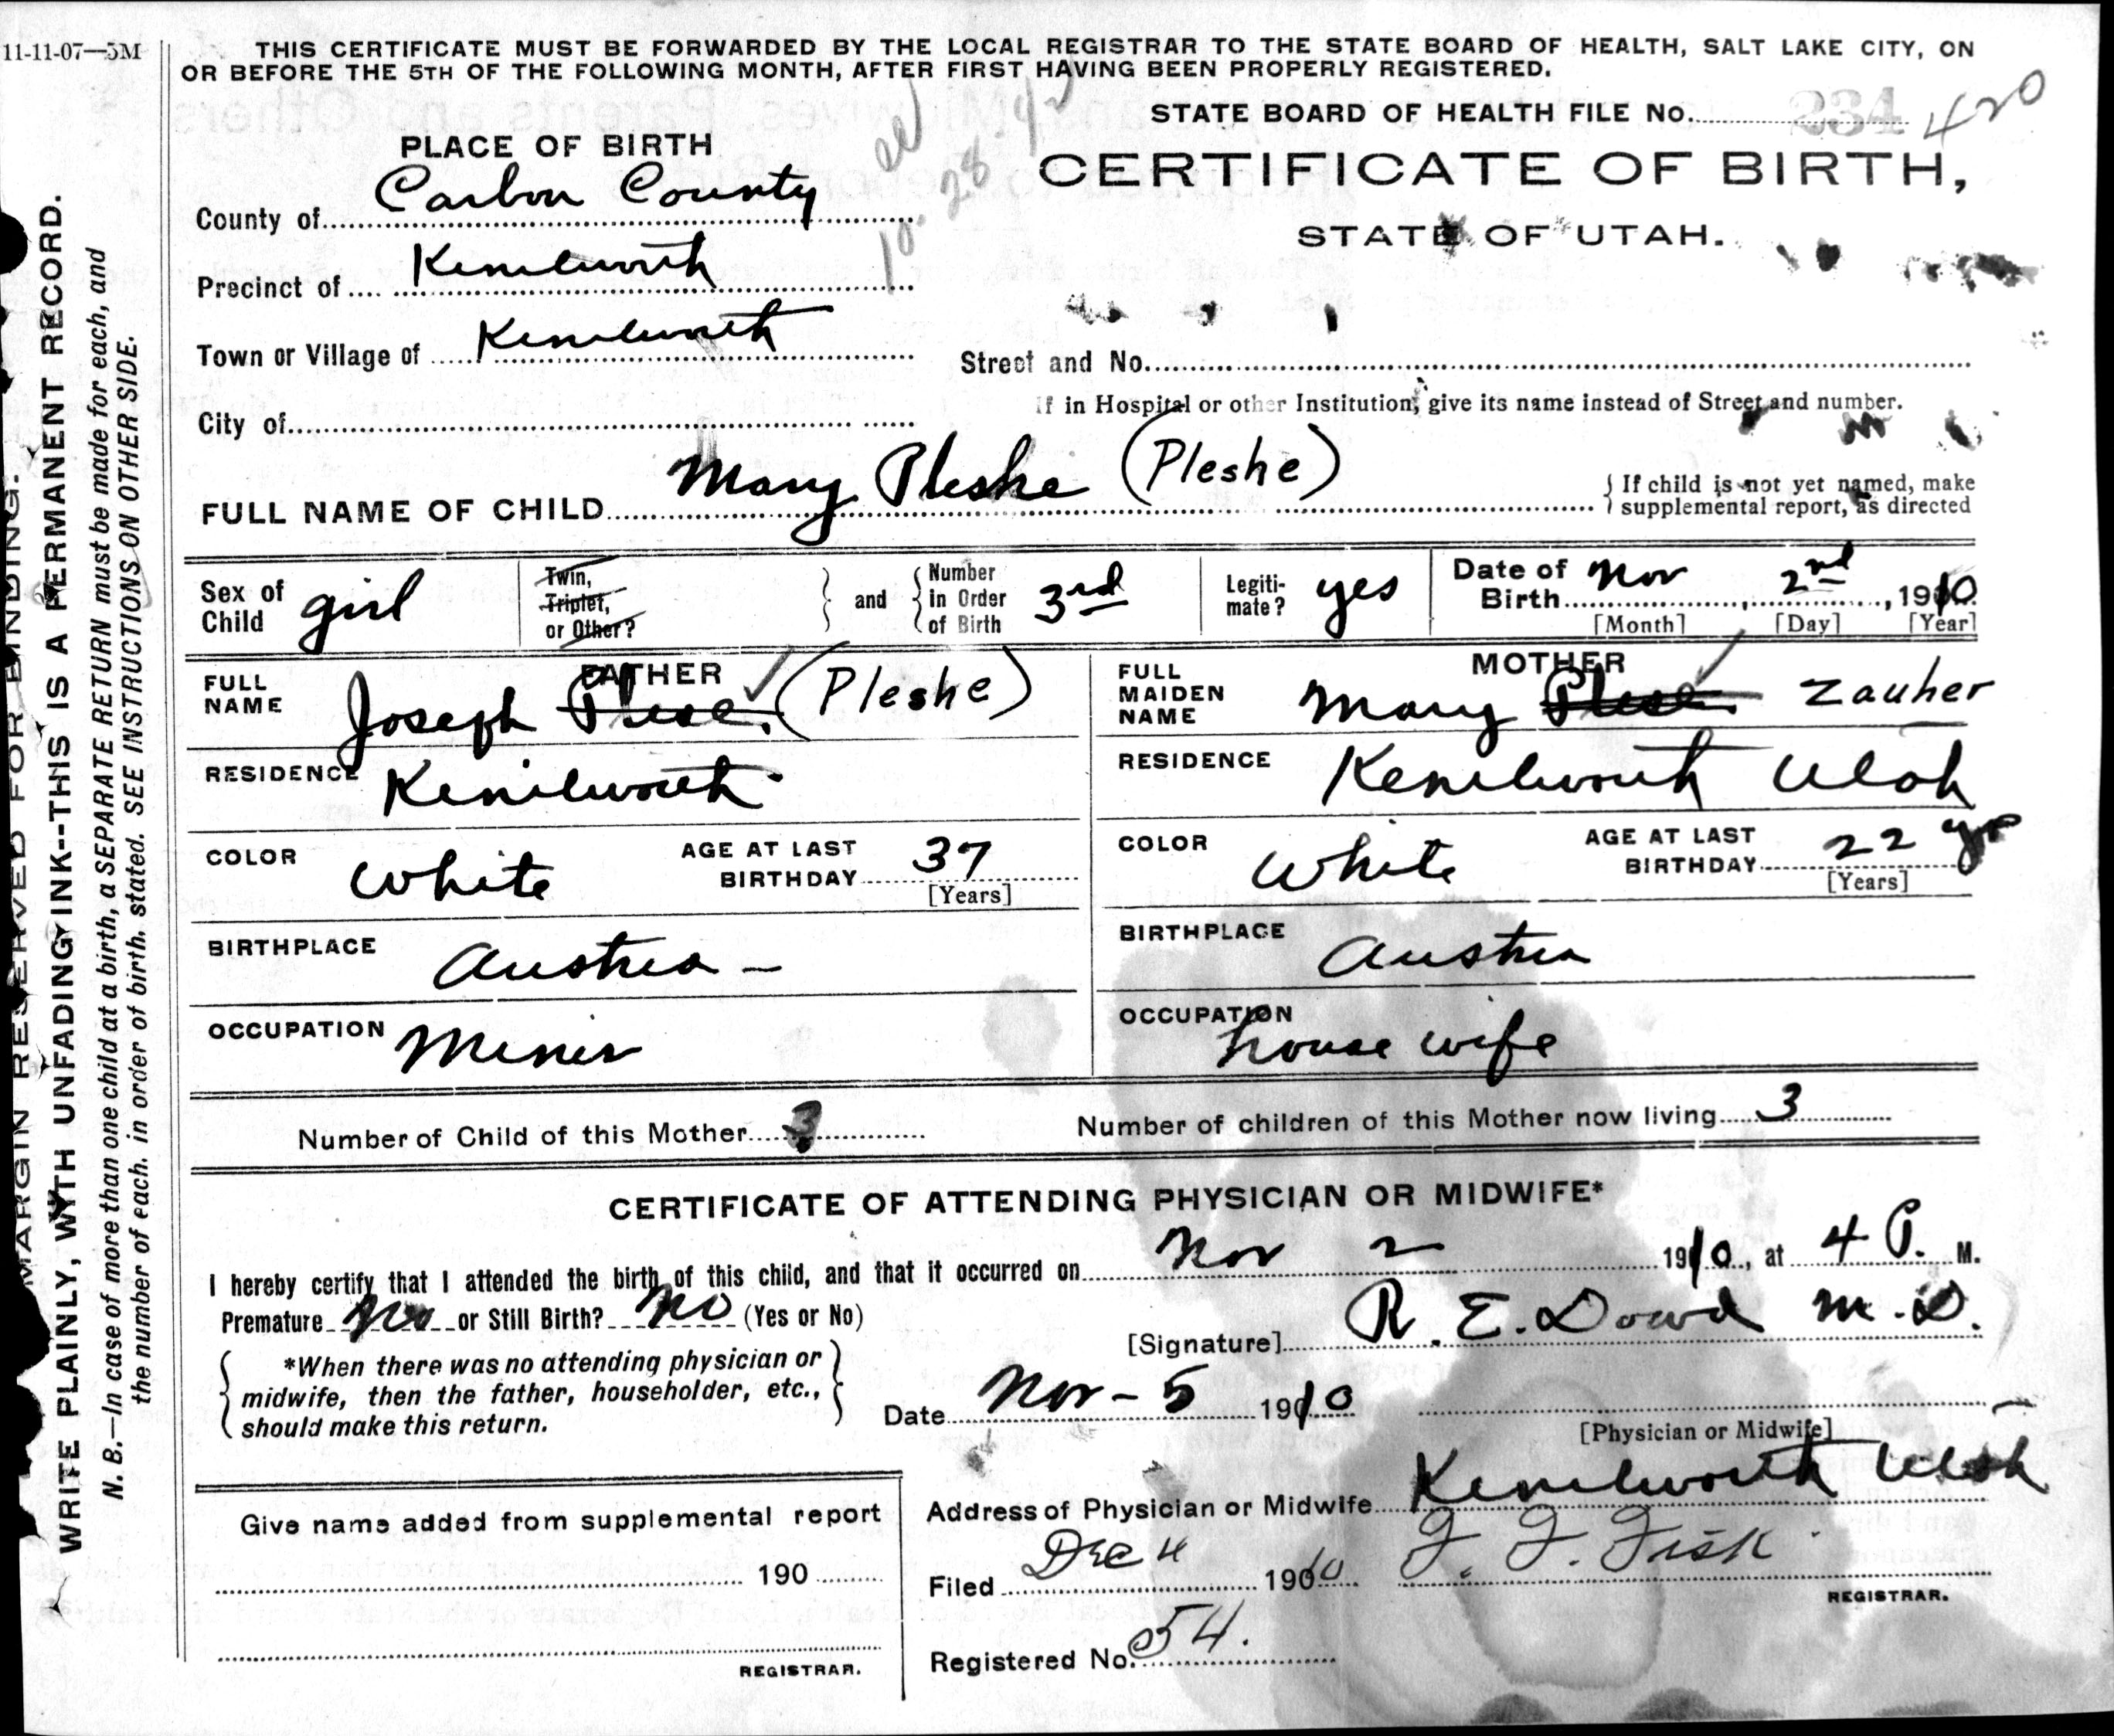 11-11-07—5M
THIS CERTIFICATE MUST BE FORWARDED BY THE LOCAL REGISTRAR TO THE STATE BOARD OF HEALTH, SALT LAKE CITY, ON
OR BEFORE THE 5TH OF THE FOLLOWING MONTH, AFTER FIRST HAVING BEEN PROPERLY REGISTERED.
STATE BOARD OF HEALTH FILE No. 234 420
PLACE OF BIRTH
CERTIFICATE OF BIRTH,
STATE OF UTAH.
County of Carbon County
10. 28 42
Precinct of Kenilworth
Town or Village of Kenilworth
Street and No.
If in Hospital or other Institution, give its name instead of Street and number.
City of
FULL NAME OF CHILD Mary Pleshe (Pleshe)
If child is not yet named, make
supplemental report, as directed
Sex of Child girl
Twin, Triplet, or Other?
and
Number in Order of Birth 3rd
Legiti-mate? yes
Date of Birth Nov 2nd, 1910
[Month] [Day] [Year]
FATHER
FULL NAME Joseph Plese. (Pleshe)
RESIDENCE Kenilworth
COLOR White
AGE AT LAST BIRTHDAY 37
[Years]
BIRTHPLACE Austria —
OCCUPATION Miner
MOTHER
FULL MAIDEN NAME Mary Plese Zauher
RESIDENCE Kenilworth Utah
COLOR White
AGE AT LAST BIRTHDAY 22 yrs
[Years]
BIRTHPLACE Austria
OCCUPATION house wife
Number of Child of this Mother 3
Number of children of this Mother now living 3
CERTIFICATE OF ATTENDING PHYSICIAN OR MIDWIFE*
I hereby certify that I attended the birth of this child, and that it occurred on Nov 2 1910, at 4 P. M.
Premature No or Still Birth? No (Yes or No)
[Signature] R. E. Dowd M.D.
*When there was no attending physician or
midwife, then the father, householder, etc.,
should make this return.
Date Nov - 5 1910
[Physician or Midwife]
Address of Physician or Midwife Kenilworth Utah
Give name added from supplemental report
190
REGISTRAR.
Filed Dec 4 1910 F. F. Fisk
REGISTRAR.
Registered No. 54.
MARGIN RESERVED FOR BINDING.
WRITE PLAINLY, WITH UNFADING INK--THIS IS A PERMANENT RECORD.
N. B.—In case of more than one child at a birth, a SEPARATE RETURN must be made for each, and
the number of each, in order of birth, stated. SEE INSTRUCTIONS ON OTHER SIDE.